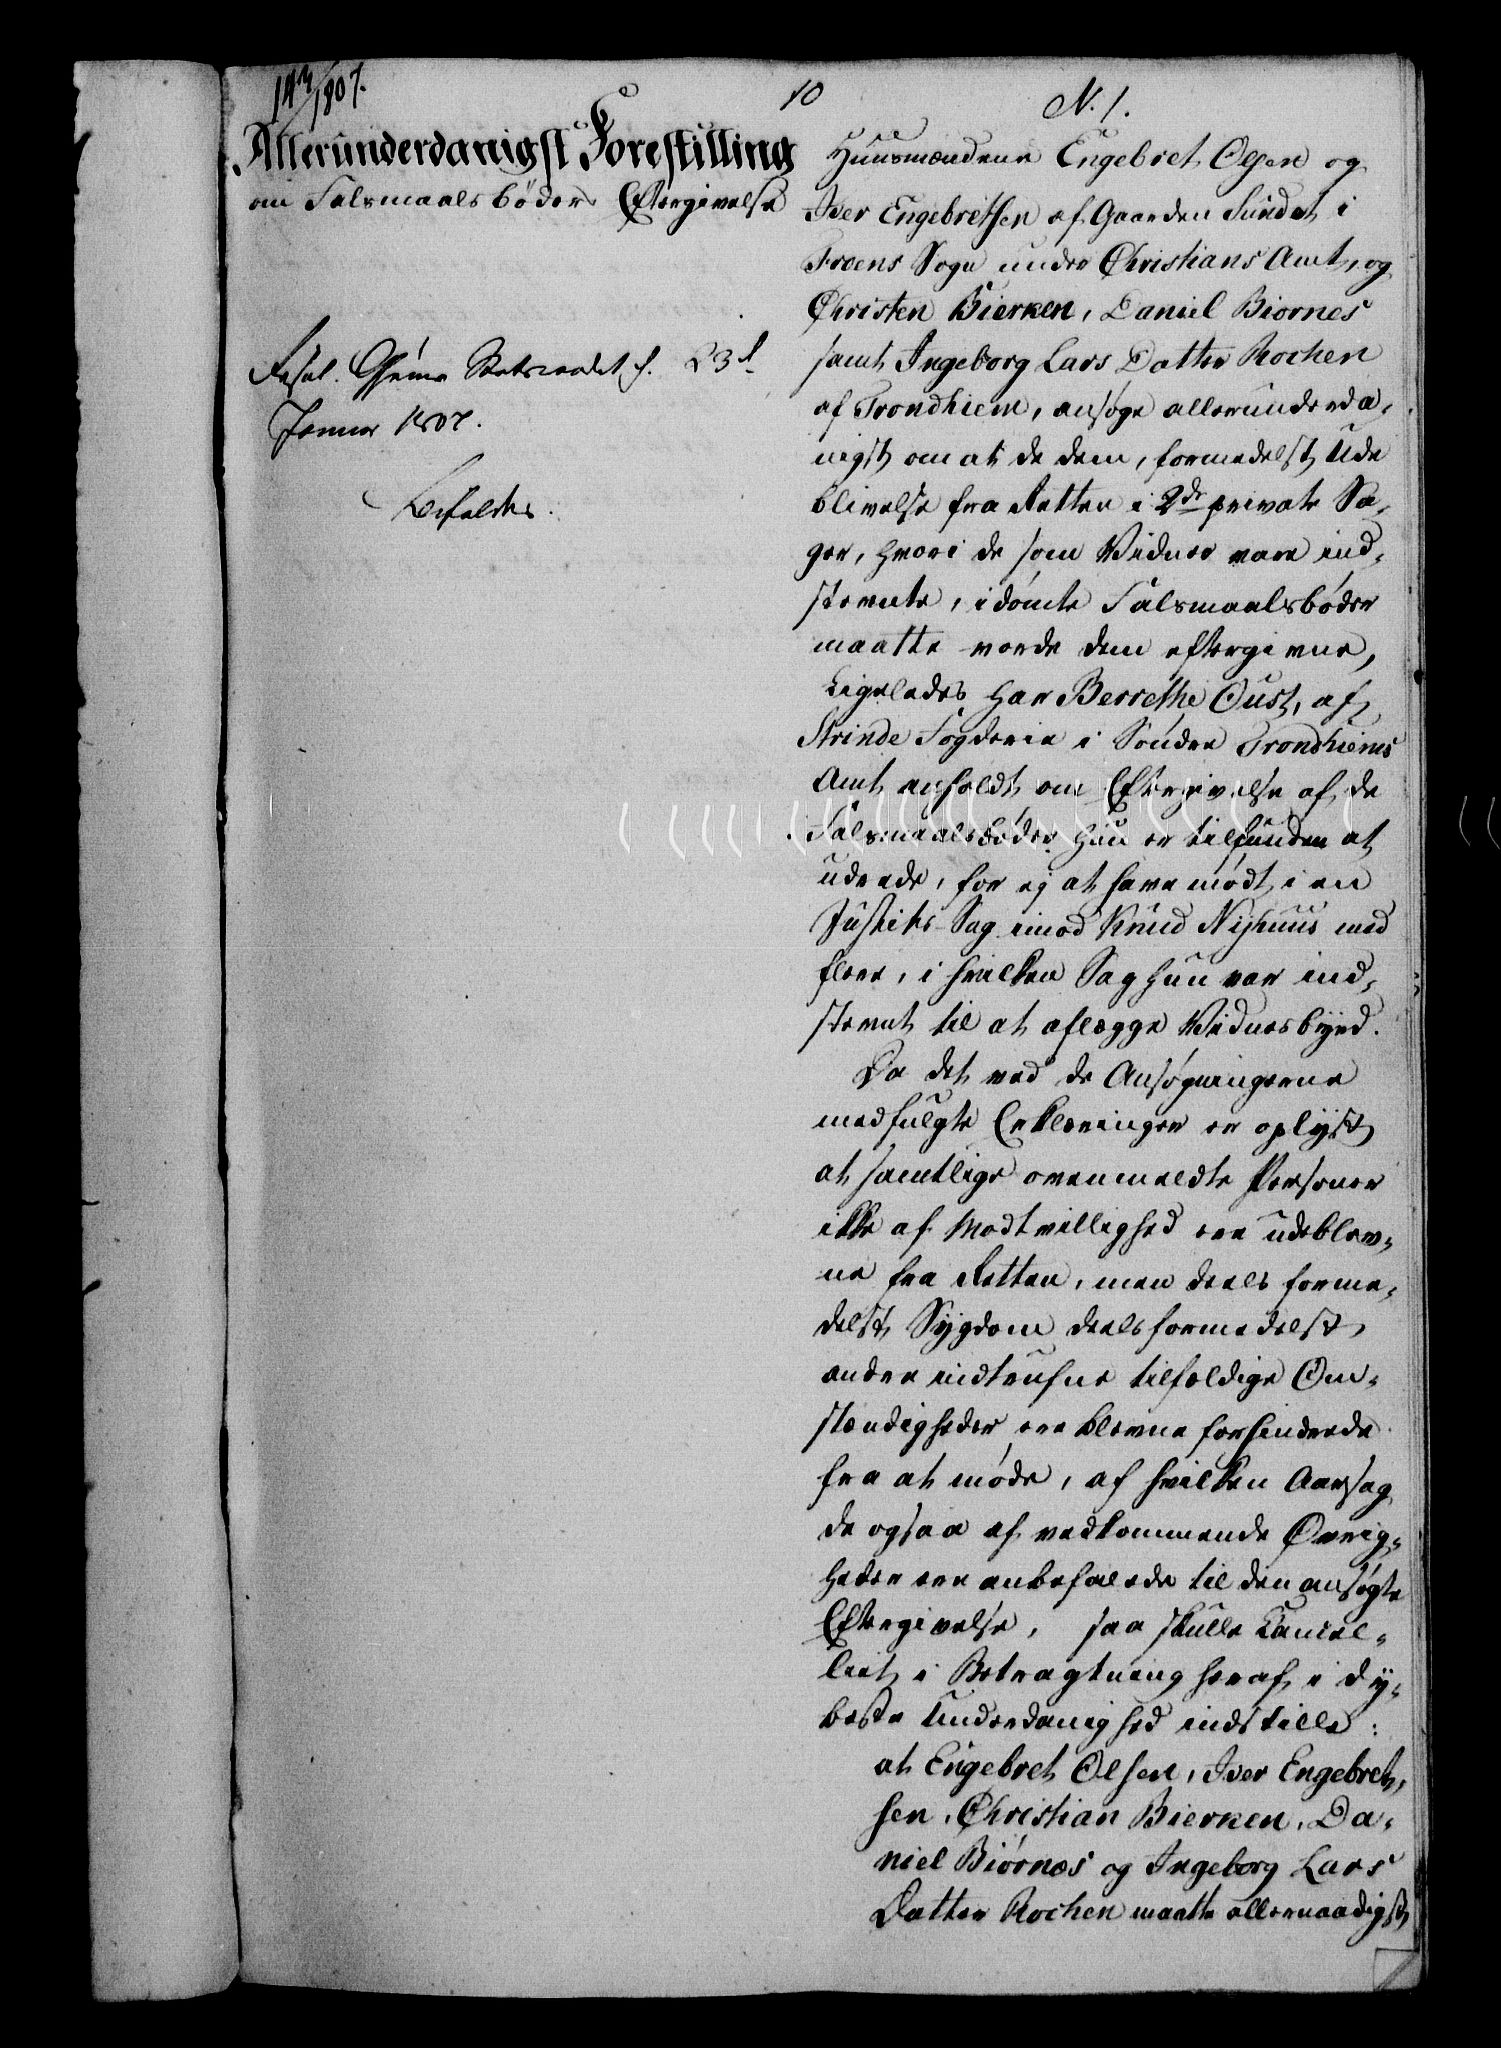 143/1807.
10
N. 1.
Allerunderdanigst Forestilling
om Falsmaalsbøders Eftergivelse
Resol. Geheime Statsraadet d. 23d
Januar 1807.
Bifaldes.
Huusmændene Engebret Olsen og
Iver Engebretsen af Gaarden Sundet i
Froens Sogn under Christians Amt, og
Christen Bierken, Daniel Biornes
samt Ingeborg Lars Datter Rochen
af Trondhiem, ansøge allerunderda-
nigst om at de dem, formedelst Ude
blivelse fra Retten i 2de private Sa-
ger, hvori de som Vidner vare ind-
stevnte, idømte Falsmaalsbøder
maatte vorde dem eftergivne,
Ligeledes har Berrethe Oust, af
Strinde Fogderie i Sønder Trondhiems
Amt anholdt om Eftergivelse af de
Falsmaalsbøder hun er tilfunden at
udrede, for ej at have mødt i en
Justits Sag imod Knud Nijhuus med
flere, i hvilken Sag hun var ind-
stevnt til at aflægge Vidnesbyrd.
Da det ved de Ansøgningerne
medfulgte Erklæringer er oplyst
at samtlige ovenmeldte Personer
ikke af Modtvillighed ere udeblev-
ne fra Retten, men deels forme-
delst Sygdom deels formedelst
andre indtrufne tilfældige Om-
stændigheder ere blevne forhindrede
fra at møde, af hvilken Aarsag
de ogsaa af vedkommende Øvrig-
heder ere anbefalede til den ansøgte
Eftergivelse, saa skulle Cancel-
liet i Betragtning heraf i dy-
beste Underdanighed indstille:
at Engebret Olsen, Iver Engebret-
sen, Christian Bierken, Da-
niel Biørnes og Ingeborg Lars
Datter Rochen maatte allernaadigst